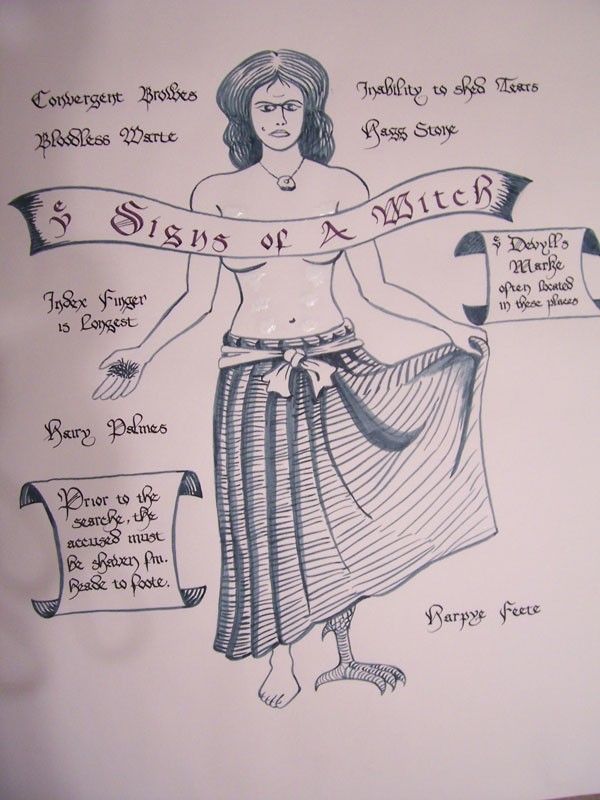 Convergent Browes
Inability to shed Tears
Bloodless Warte
Hagg Stone
Ye Signs of A Witch
Ye Devylls
Marke
often located
in these places
Index Finger
is Longest
Hairy Palmes
Prior to the
searche, the
accused must
be shaven fm.
heade to foote.
Harpye Feete